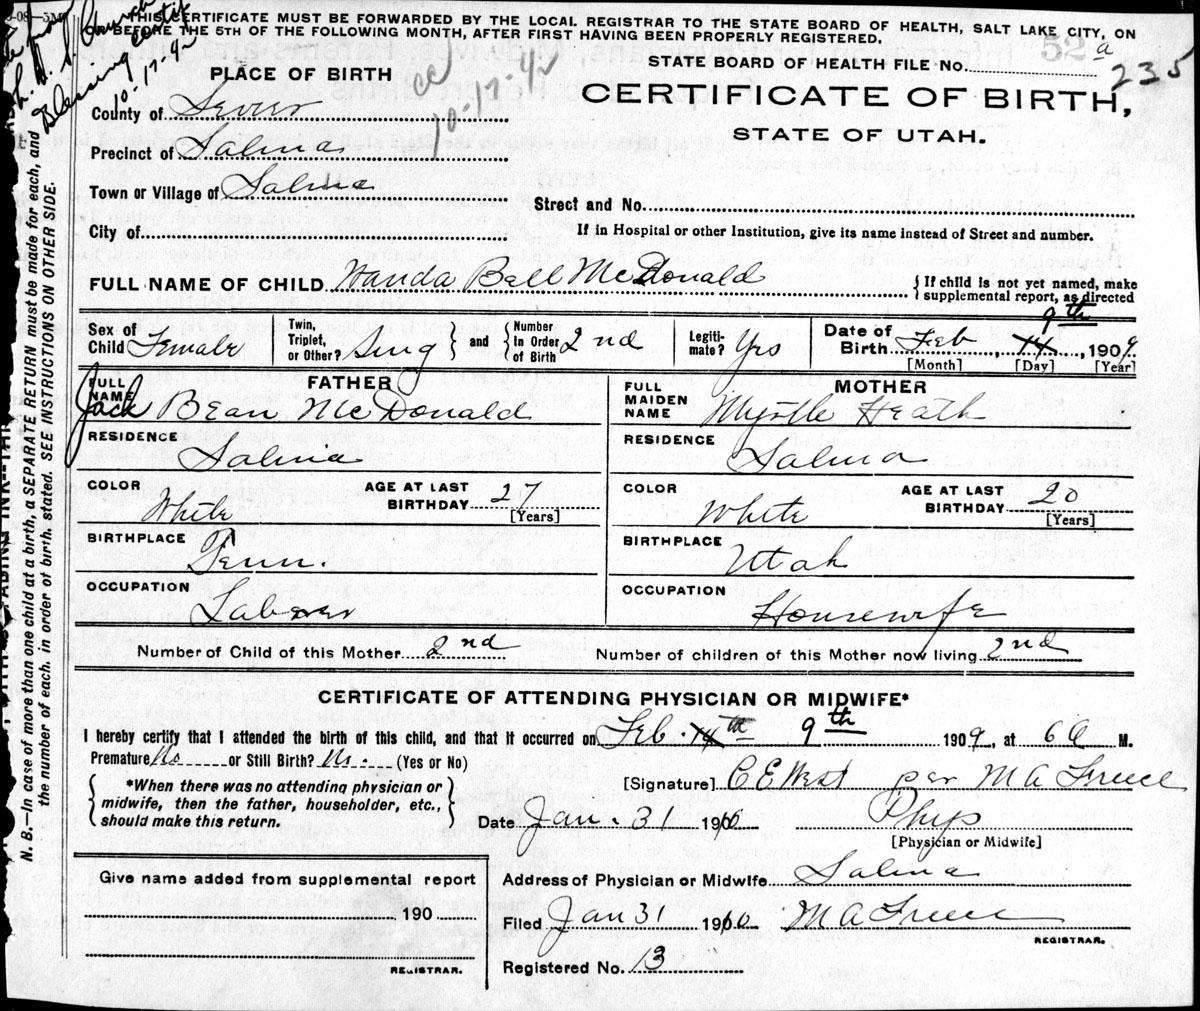 THIS CERTIFICATE MUST BE FORWARDED BY THE LOCAL REGISTRAR TO THE STATE BOARD OF HEALTH, SALT LAKE CITY, ON
OR BEFORE THE 5TH OF THE FOLLOWING MONTH, AFTER FIRST HAVING BEEN PROPERLY REGISTERED.
Blessing Certif
10-17-42
10-17-42
52 a
235
STATE BOARD OF HEALTH FILE NO.
PLACE OF BIRTH
CERTIFICATE OF BIRTH,
STATE OF UTAH.
County of Sevier
Precinct of Salina
Town or Village of Salina
Street and No.
City of
If in Hospital or other Institution, give its name instead of Street and number.
FULL NAME OF CHILD Wanda Bell McDonald
{ If child is not yet named, make supplemental report, as directed
Sex of Child Female
Twin, Triplet, or Other? Sing } and { Number In Order of Birth 2nd
Legiti-mate? Yes
Date of Birth Feb, 14 9th, 1909
[Month] [Day] [Year]
FATHER
FULL NAME Jack Bean McDonald
RESIDENCE Salina
COLOR White
AGE AT LAST BIRTHDAY 27 [Years]
BIRTHPLACE Tenn.
OCCUPATION Laborer
MOTHER
FULL MAIDEN NAME Myrtle Heath
RESIDENCE Salina
COLOR White
AGE AT LAST BIRTHDAY 20 [Years]
BIRTHPLACE Utah
OCCUPATION Housewife
Number of Child of this Mother 2nd
Number of children of this Mother now living 2nd
CERTIFICATE OF ATTENDING PHYSICIAN OR MIDWIFE*
I hereby certify that I attended the birth of this child, and that it occurred on Feb. 14th 9th 1909, at 6 M.
Premature No or Still Birth? No. (Yes or No)
{ *When there was no attending physician or midwife, then the father, householder, etc., should make this return. }
[Signature] C E West per M A
Phys
[Physician or Midwife]
Date Jan. 31 1910
Address of Physician or Midwife Salina
Filed Jan 31 1910 M A
REGISTRAR.
Registered No. 13
Give name added from supplemental report
190
REGISTRAR.
N. B.—In case of more than one child at a birth, a SEPARATE RETURN must be made for each, and
the number of each, in order of birth, stated. SEE INSTRUCTIONS ON OTHER SIDE.